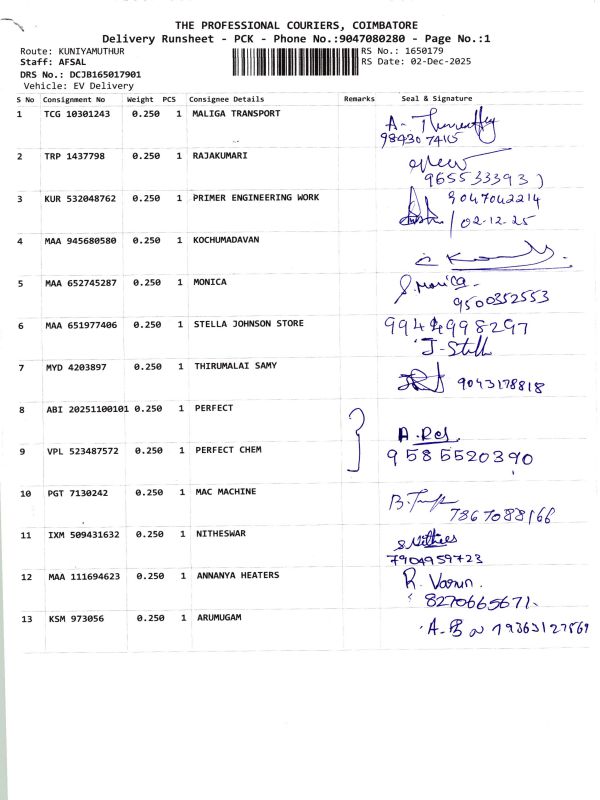 THE PROFESSIONAL COURIERS, COIMBATORE
Delivery Runsheet - PCK - Phone No.:9047080280 - Page No.:1
Route: KUNIYAMUTHUR RS No.: 1650179
Staff: AFSAL RS Date: 02-Dec-2025
DRS No.: DCJB165017901
Vehicle: EV Delivery
S No Consignment No Weight PCS Consignee Details Remarks Seal & Signature
1 TCG 10301243 0.250 1 MALIGA TRANSPORT A-
9843074115
2 TRP 1437798 0.250 1 RAJAKUMARI
9655333931
3 KUR 532048762 0.250 1 PRIMER ENGINEERING WORK 9047042214
02-12-25
4 MAA 945680580 0.250 1 KOCHUMADAVAN
5 MAA 652745287 0.250 1 MONICA S. Monica.
9500352553
6 MAA 651977406 0.250 1 STELLA JOHNSON STORE 9944998297
J-Stell
7 MYD 4203897 0.250 1 THIRUMALAI SAMY 9043178818
8 ABI 20251100101 0.250 1 PERFECT
9 VPL 523487572 0.250 1 PERFECT CHEM
9585520390
10 PGT 7130242 0.250 1 MAC MACHINE
7867088166
11 IXM 509431632 0.250 1 NITHESWAR
7904959723
12 MAA 111694623 0.250 1 ANNANYA HEATERS R. Varun.
8270665671.
13 KSM 973056 0.250 1 ARUMUGAM